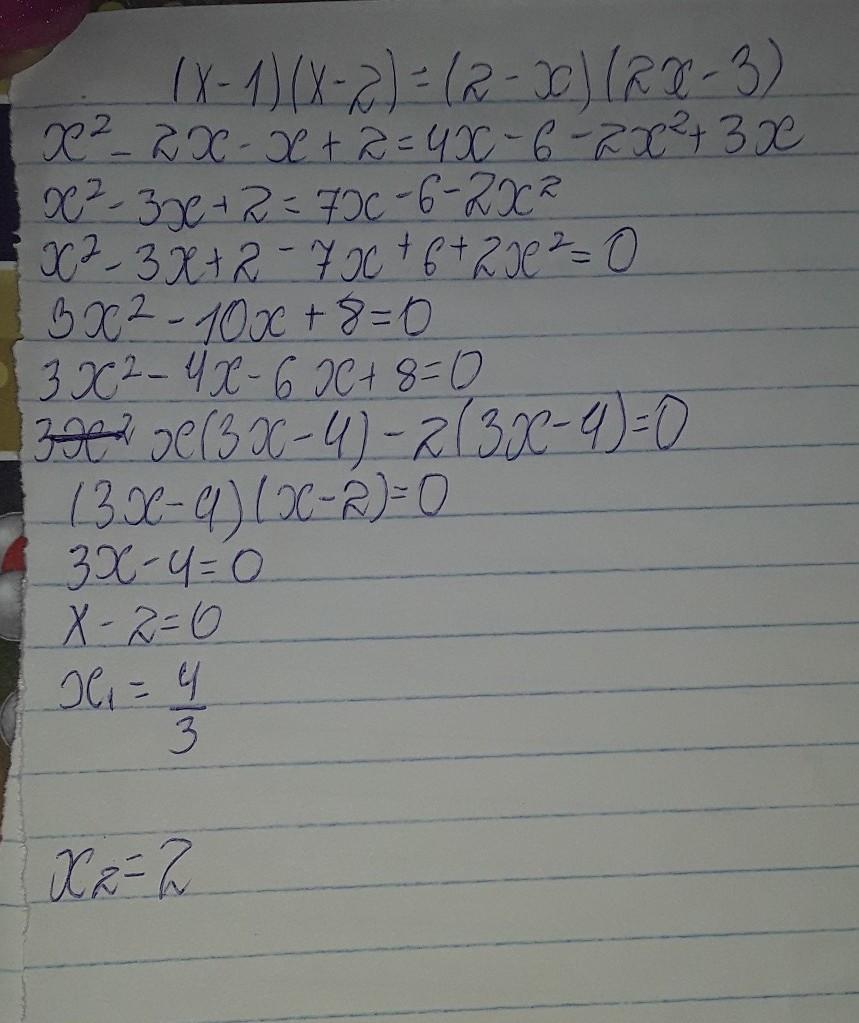 (x-1)(x-2)=(2-x)(2x-3)
x²-2x-x+2=4x-6-2x²+3x
x²-3x+2=7x-6-2x²
x²-3x+2-7x+6+2x²=0
3x²-10x+8=0
3x²-4x-6x+8=0
3x² x(3x-4)-2(3x-4)=0
(3x-4)(x-2)=0
3x-4=0
x-2=0
x₁=4/3
x₂=2